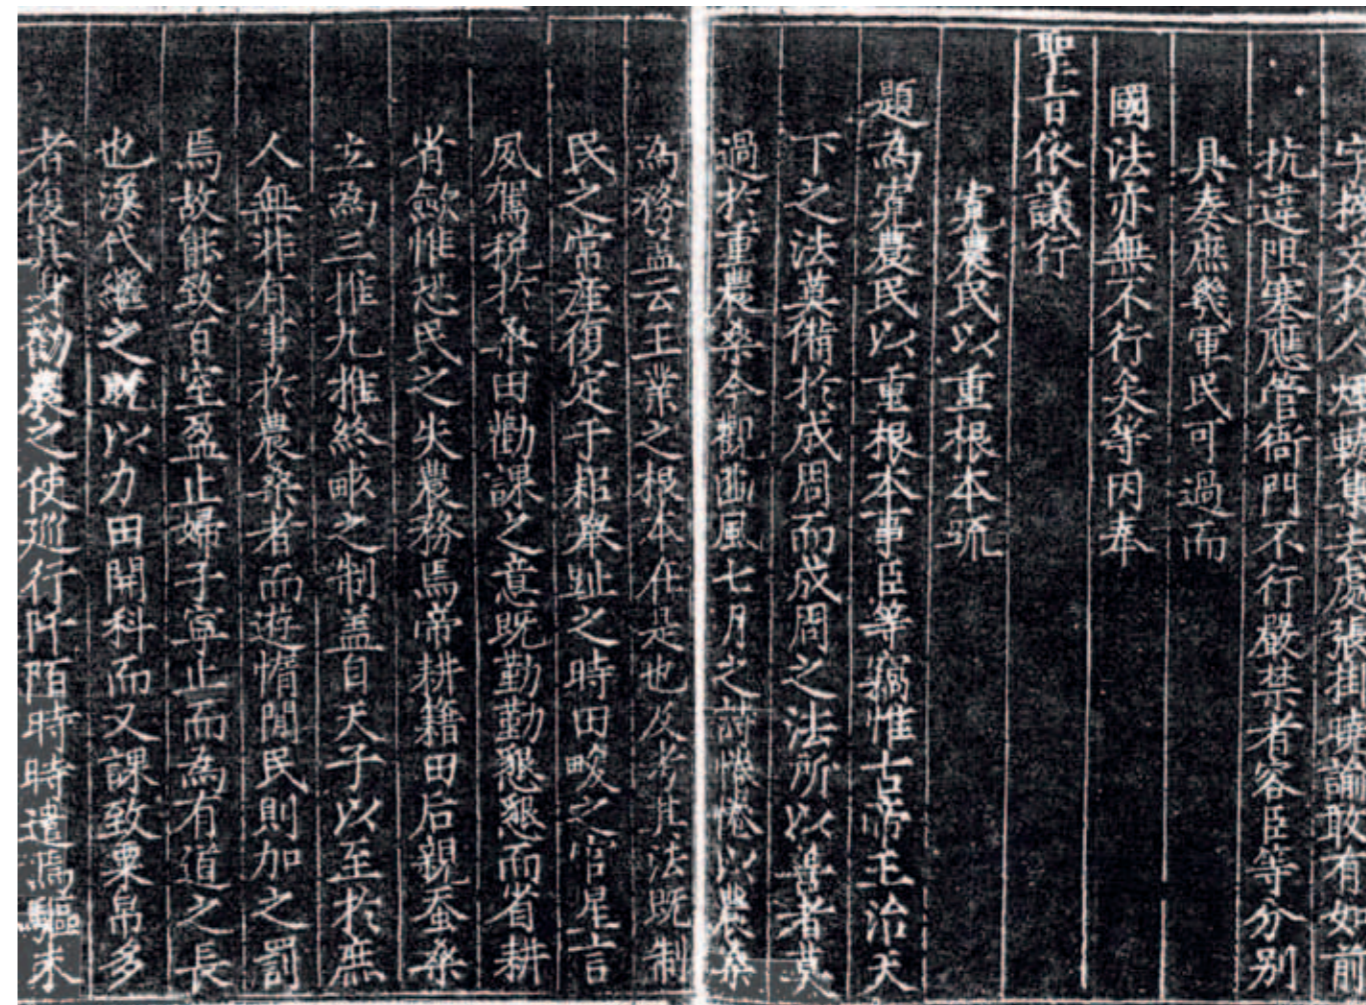 字樣文於人煙輳集去處張掛曉諭敢有如前
抗違阻塞應管衙門不行嚴禁者容臣等分別
具奏庶幾軍民可過而
國法亦無不行矣等因奉
聖旨依議行
寬農民以重根本疏
題為寬農民以重根本事臣等竊惟古帝王治天
下之法莫備於成周而成周之法所以善者莫
過於重農桑今觀豳風七月之詩惓惓以農桑
為務蓋云王業之根本在是也及考其法既制
民之常產復定于耜舉趾之時田畯之官星言
夙駕稅於桑田勸課之意既勤勤懇懇而省耕
省歛惟恐民之失農務焉帝耕籍田后親蚕桑
立為三推九推終畝之制蓋自天子以至於庶
人無非有事於農桑者而遊惰閒民則加之罰
焉故能致百室盈止婦子寧止而為有道之長
也漢代繼之既以力田開科而又課致粟帛多
者復其身勸農之使巡行阡陌時時遣焉驅末